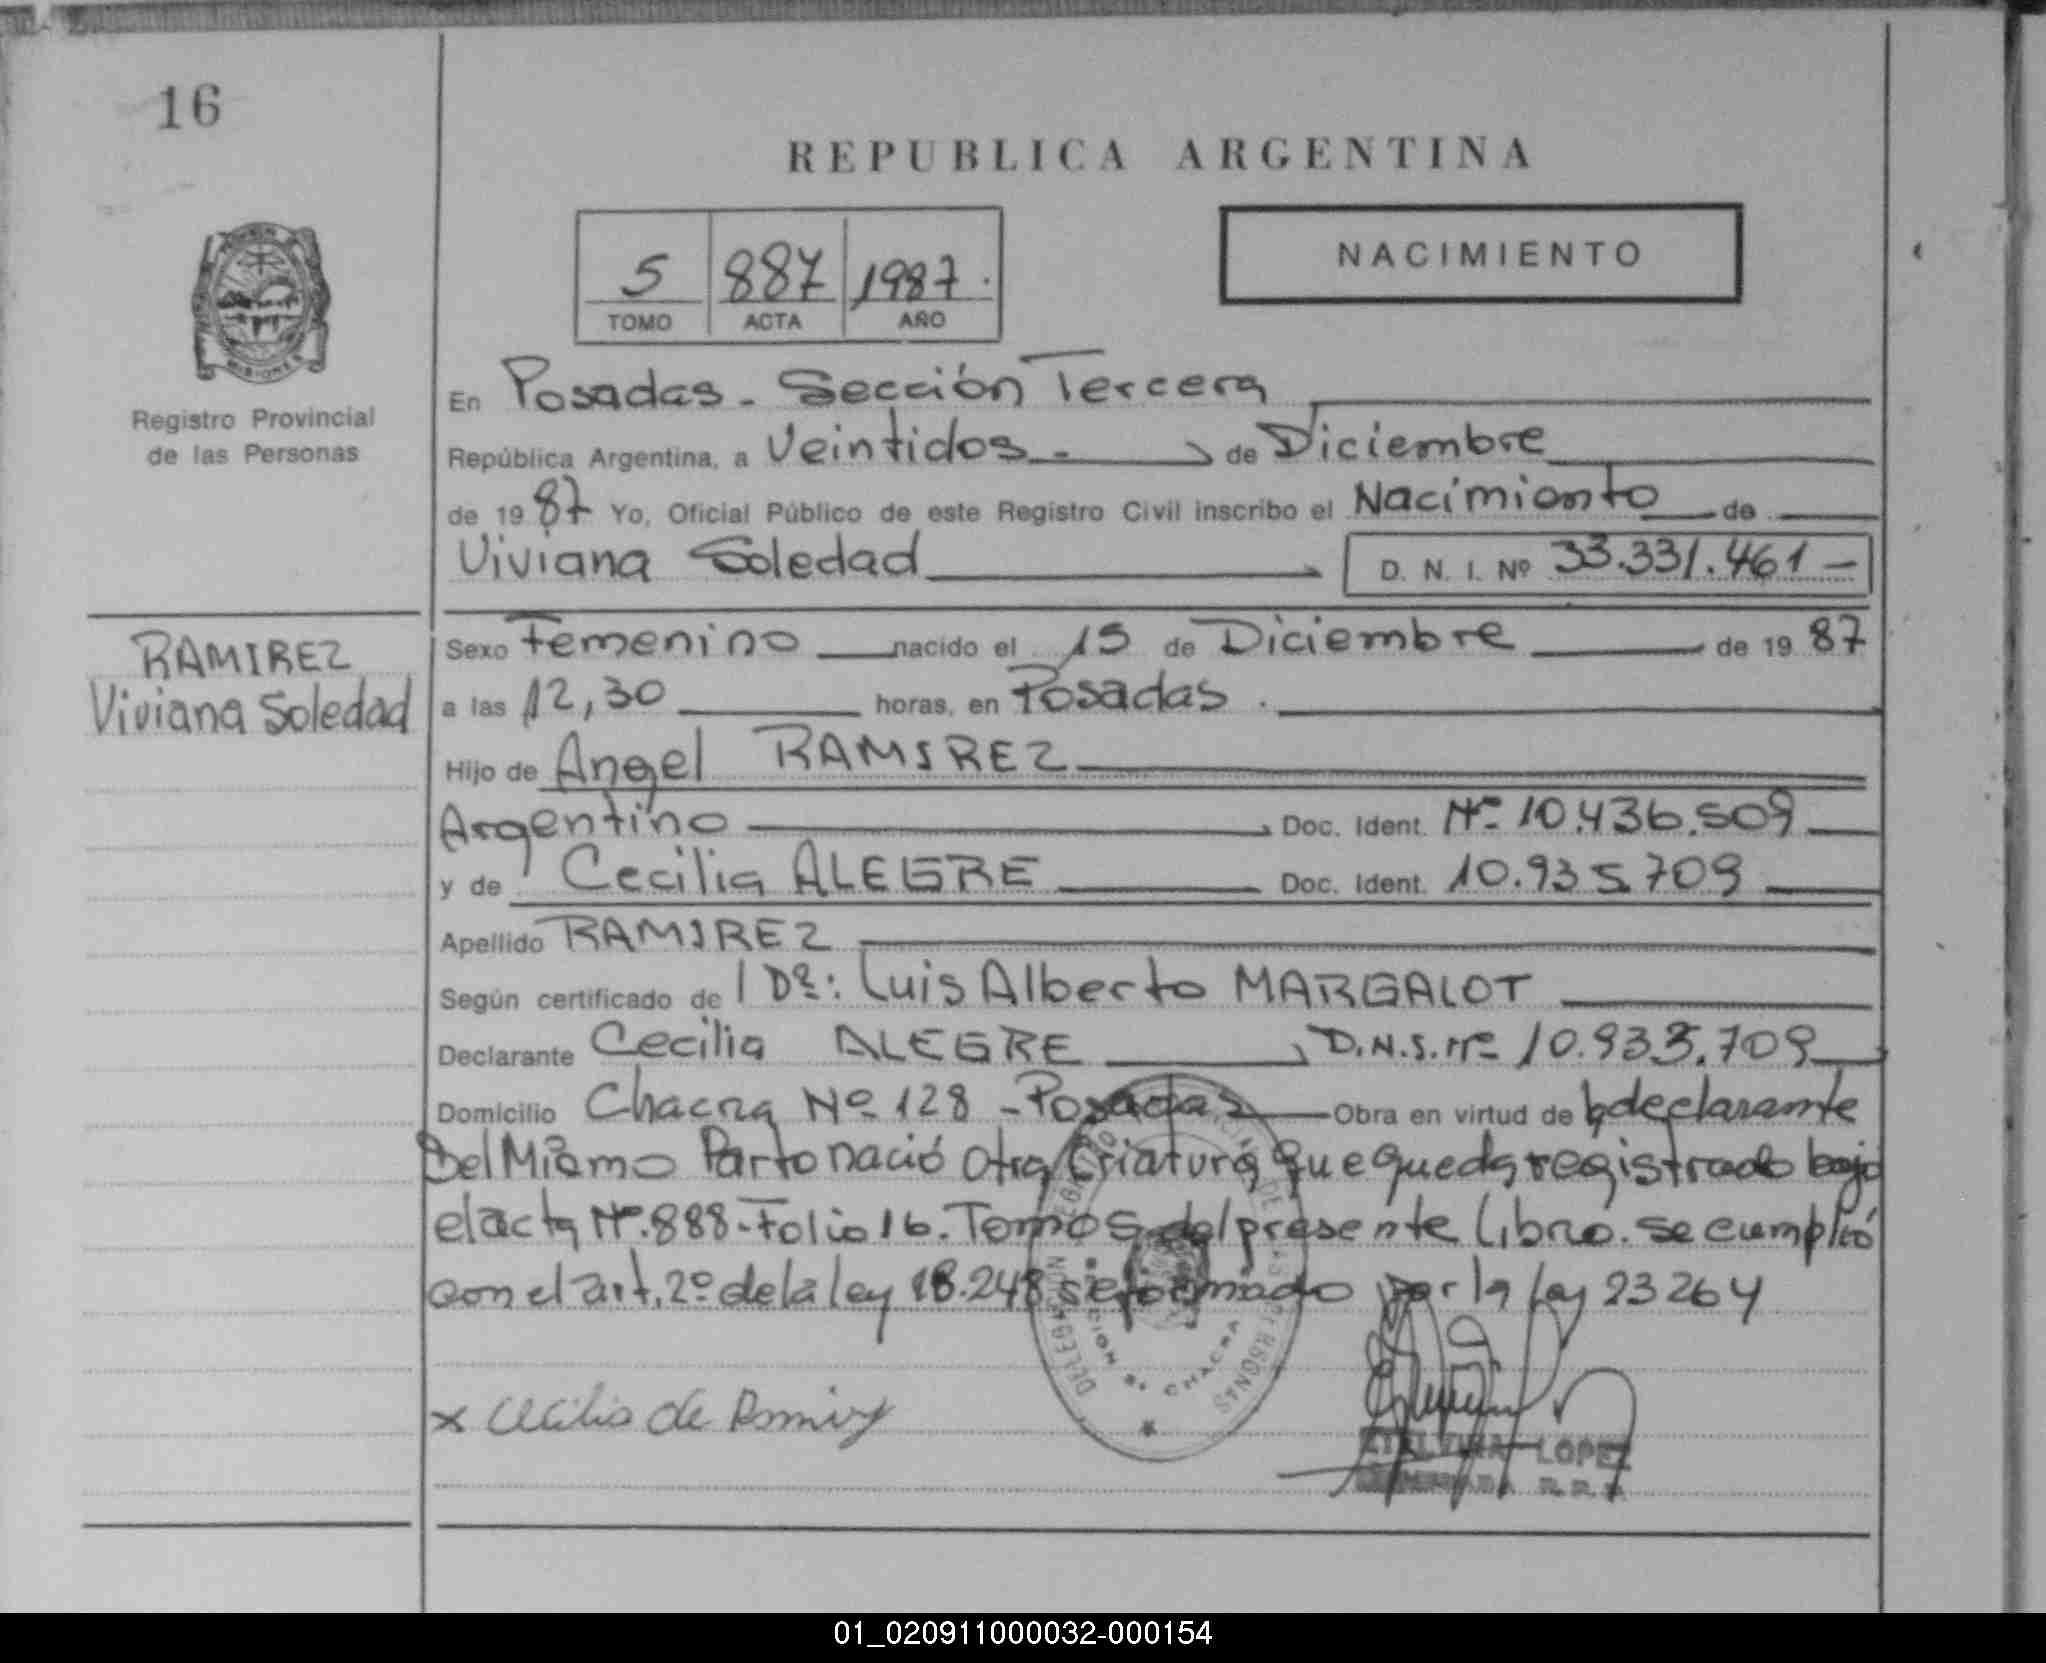 16
REPUBLICA ARGENTINA
5 887 1987.
TOMO ACTA AÑO
NACIMIENTO
MISIONES
Registro Provincial
de las Personas
En Posadas - Sección Tercera
República Argentina, a Veintidos - de Diciembre
de 19 87 Yo, Oficial Público de este Registro Civil inscribo el Nacimiento de
Viviana Soledad D. N. I. Nº 33.331.461 -
RAMIREZ
Viviana Soledad
Sexo Femenino nacido el 15 de Diciembre de 19 87
a las 12,30 horas, en Posadas .
Hijo de Angel RAMIREZ
Argentino Doc. Ident. Nº 10.436.509
y de Cecilia ALEGRE Doc. Ident. 10.935.709
Apellido RAMIREZ
Según certificado de Dr: Luis Alberto MARGALOT
Declarante Cecilia ALEGRE D.N.I. Nº 10.935.709
Domicilio Chacra Nº 128 - Posadas Obra en virtud de la declarante
Del Mismo Parto nació otra Criatura que queda registrado bajo
el acta Nº. 888 - Folio 16. Tomo 5 del presente libro. se cumplió
con el art. 2º de la ley 18.248 reformado por la ley 23264
x Cecilia de
LOPEZ
01_020911000032-000154